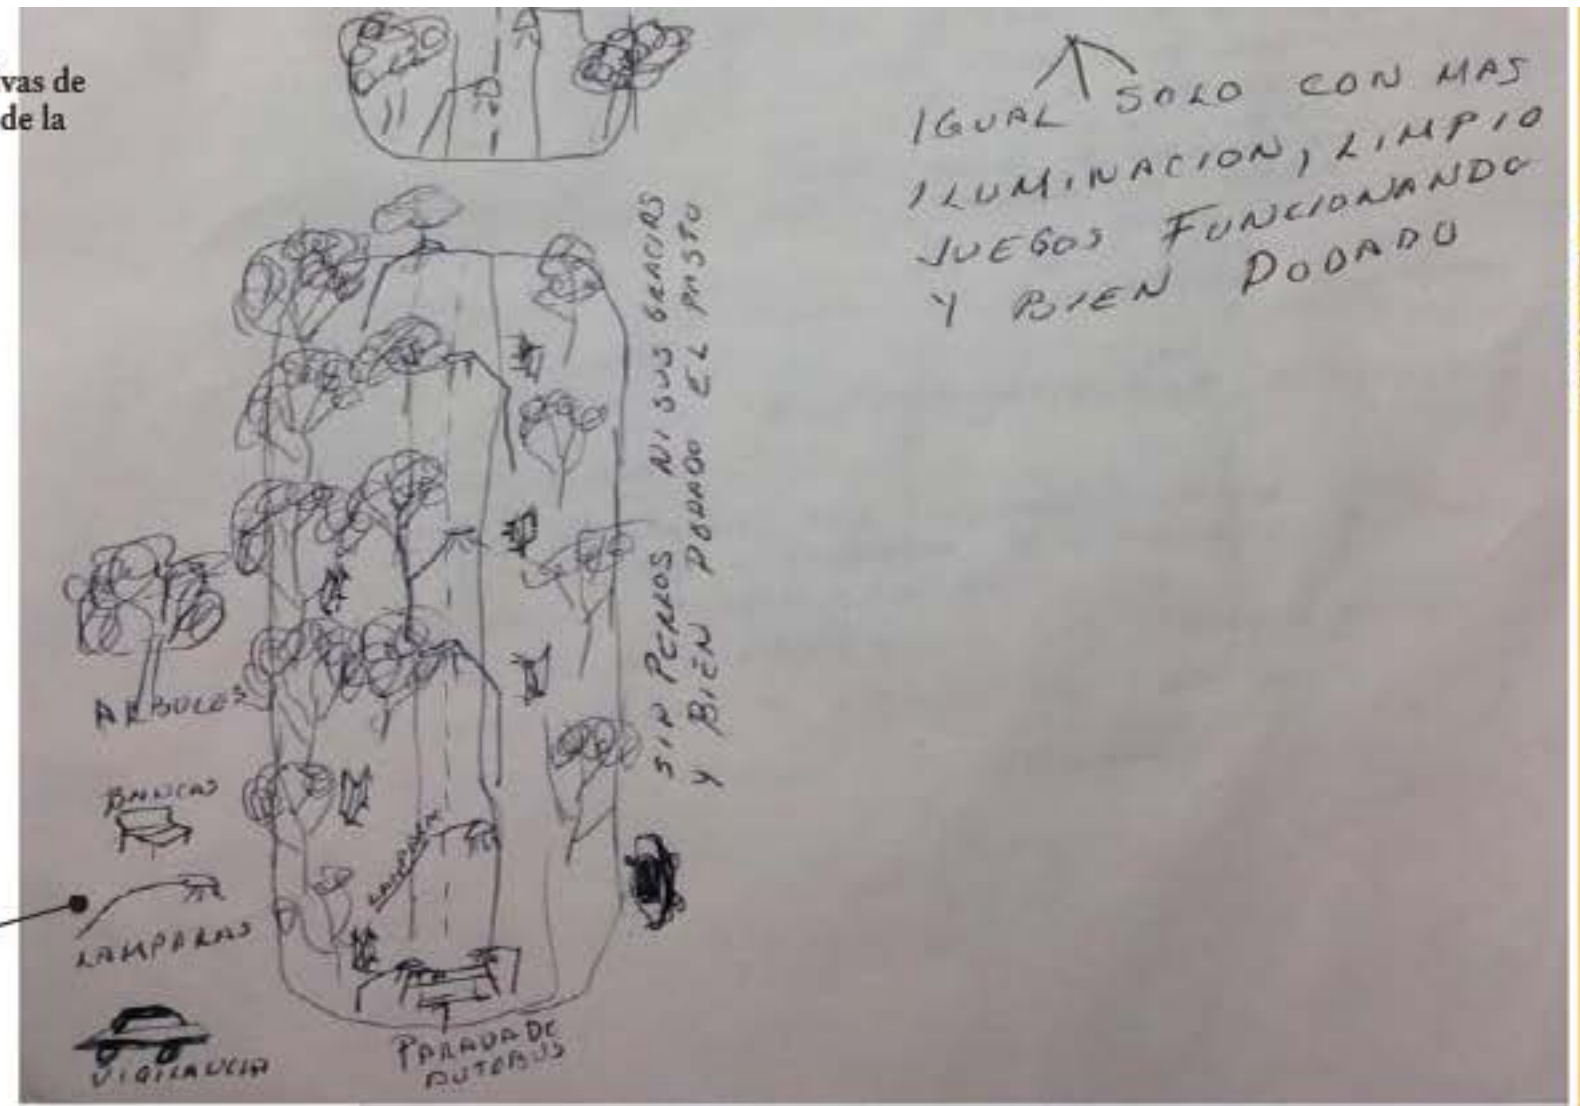 vas de
de la
IGUAL SOLO CON MAS
ILUMINACION, LIMPIO
JUEGOS FUNCIONANDO
Y BIEN PODADO
SIN PERROS NI SUS GRACIAS
Y BIEN PODADO EL PASTO
ARBOLES
BANCAS
LAMPARA
LAMPARAS
VIGILANCIA
PARADA DE
AUTOBUS